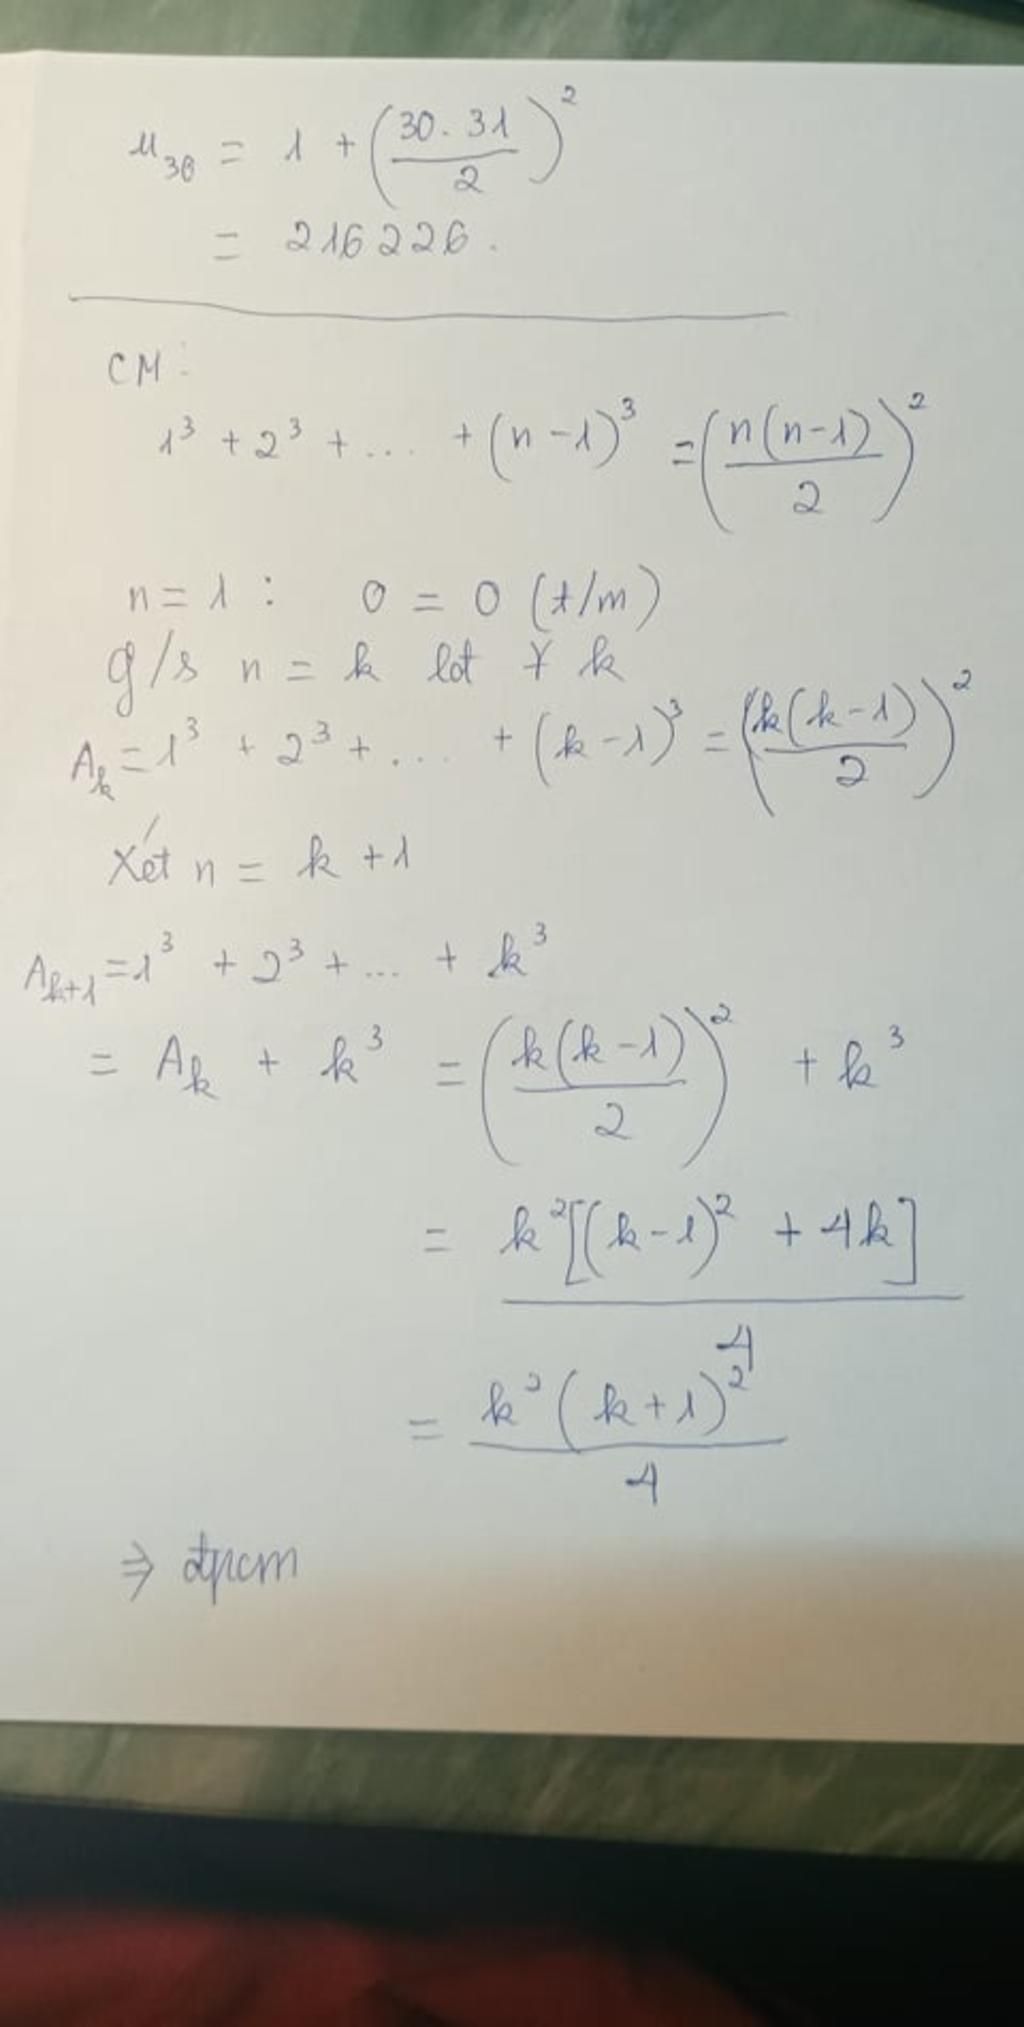 u₃₀ = 1 + (30.31/2)²
= 216226.
CM:
1³ + 2³ + ... + (n-1)³ = (n(n-1)/2)²
n = 1 : 0 = 0 (t/m)
g/s n = k lot ∀ k
A_k = 1³ + 2³ + ... + (k-1)³ = (k(k-1)/2)²
Xét n = k + 1
A_{k+1} = 1³ + 2³ + ... + k³
= A_k + k³ = (k(k-1)/2)² + k³
= k²[(k-1)² + 4k]/4
= k²(k+1)²/4
⇒ đpcm